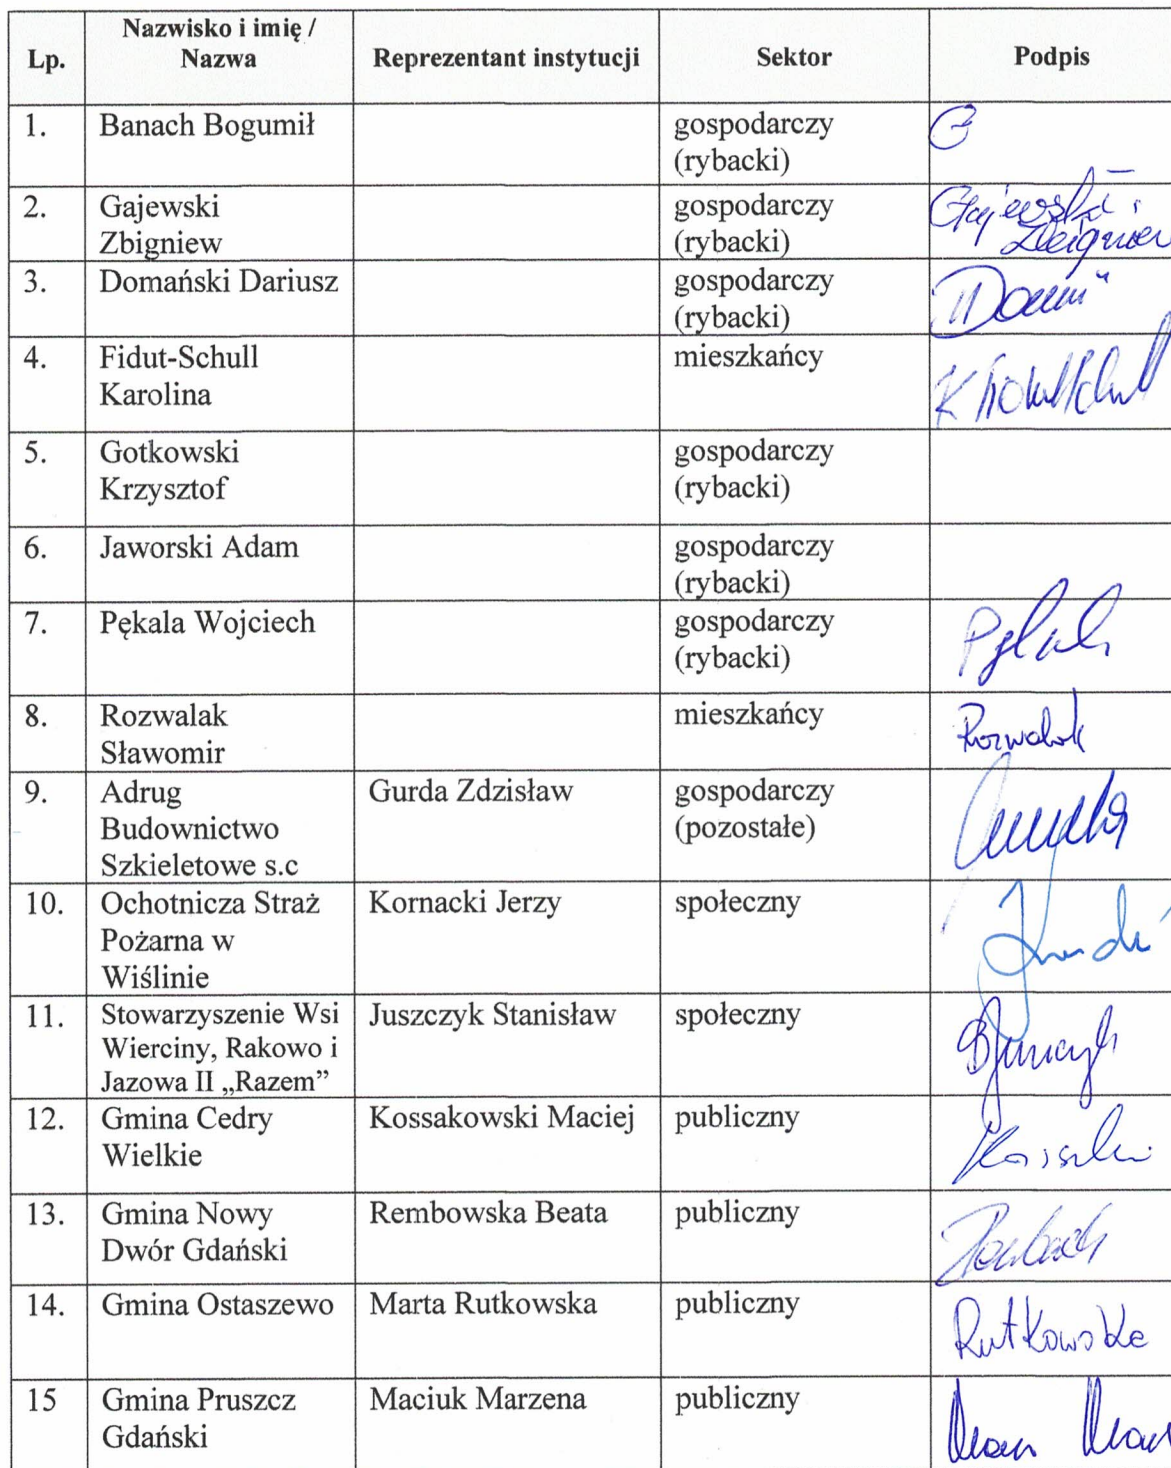 Lp.
Nazwisko i imię /
Nazwa
Reprezentant instytucji
Sektor
Podpis
1.
Banach Bogumił
gospodarczy
(rybacki)
2.
Gajewski
Zbigniew
gospodarczy
(rybacki)
Gajewski
Zbigniew
3.
Domański Dariusz
gospodarczy
(rybacki)
4.
Fidut-Schull
Karolina
mieszkańcy
5.
Gotkowski
Krzysztof
gospodarczy
(rybacki)
6.
Jaworski Adam
gospodarczy
(rybacki)
7.
Pękala Wojciech
gospodarczy
(rybacki)
8.
Rozwalak
Sławomir
mieszkańcy
Rozwalak
9.
Adrug
Budownictwo
Szkieletowe s.c
Gurda Zdzisław
gospodarczy
(pozostałe)
10.
Ochotnicza Straż
Pożarna w
Wiślinie
Kornacki Jerzy
społeczny
11.
Stowarzyszenie Wsi
Wierciny, Rakowo i
Jazowa II „Razem”
Juszczyk Stanisław
społeczny
12.
Gmina Cedry
Wielkie
Kossakowski Maciej
publiczny
13.
Gmina Nowy
Dwór Gdański
Rembowska Beata
publiczny
14.
Gmina Ostaszewo
Marta Rutkowska
publiczny
Rutkowska
15
Gmina Pruszcz
Gdański
Maciuk Marzena
publiczny